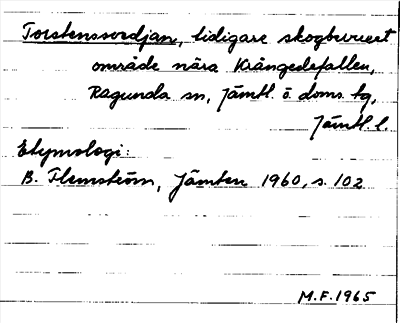 Torstenssvedjan, tidigare skogbevuxet
område nära Krångedefallen,
Ragunda sn, Jämtl. ö. doms. hg,
Jämtl. l.
Etymologi:
B. Flemström, Jämten 1960, s. 102
M.F. 1965